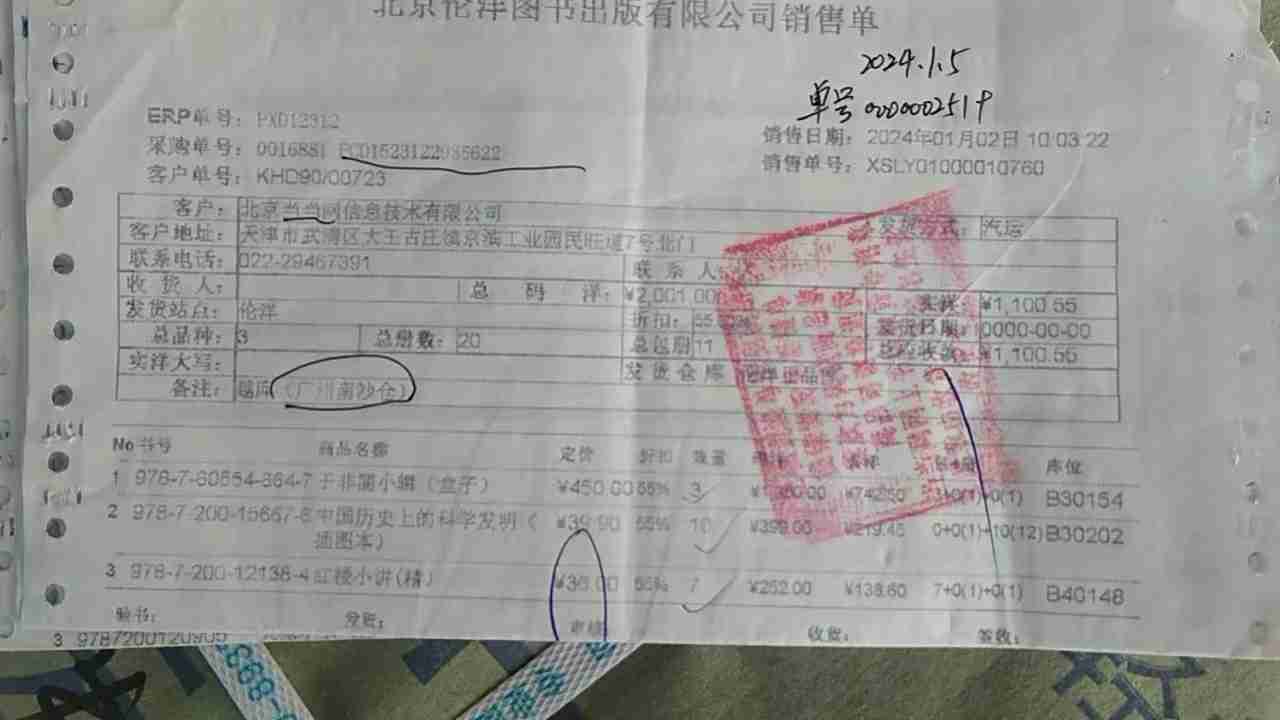 北京伦洋图书出版有限公司销售单
2024.1.5
单号 0000002519
ERP单号: PXD12312
销售日期: 2024年01月02日 10:03:22
采购单号: 0016881
销售单号: XSLY01000010760
客户单号: KHD90/00723
客户: 北京当当网信息技术有限公司 发货方式: 汽运
客户地址: 天津市武清区大王古庄镇京滨工业园民旺道7号北门
联系电话: 022-29467391 联系人:
收货人: 总码洋: ¥2,001.00 实洋: ¥1,100.55
发货站点: 伦洋 折扣: 发货日期: 0000-00-00
总品种: 3 总册数: 20 11 ¥1,100.55
实洋大写: 发货仓库
备注: 题库(广州南沙仓)
No 书号 商品名称 定价 折扣 数量 库位
1 于非闇小辑(盒子) ¥450.00 55% 3 B30154
2 中国历史上的科学发明( ¥39.90 55% 10 ¥399.00 ¥219.45 0+0(1)+10(12) B30202
插图本)
3 978-7-200-12138-4 红楼小讲(精) ¥36.00 55% 7 ¥252.00 ¥138.60 7+0(1)+0(1) B40148
验书: 发货: 审核 收货: 签收:
3 9787200120905